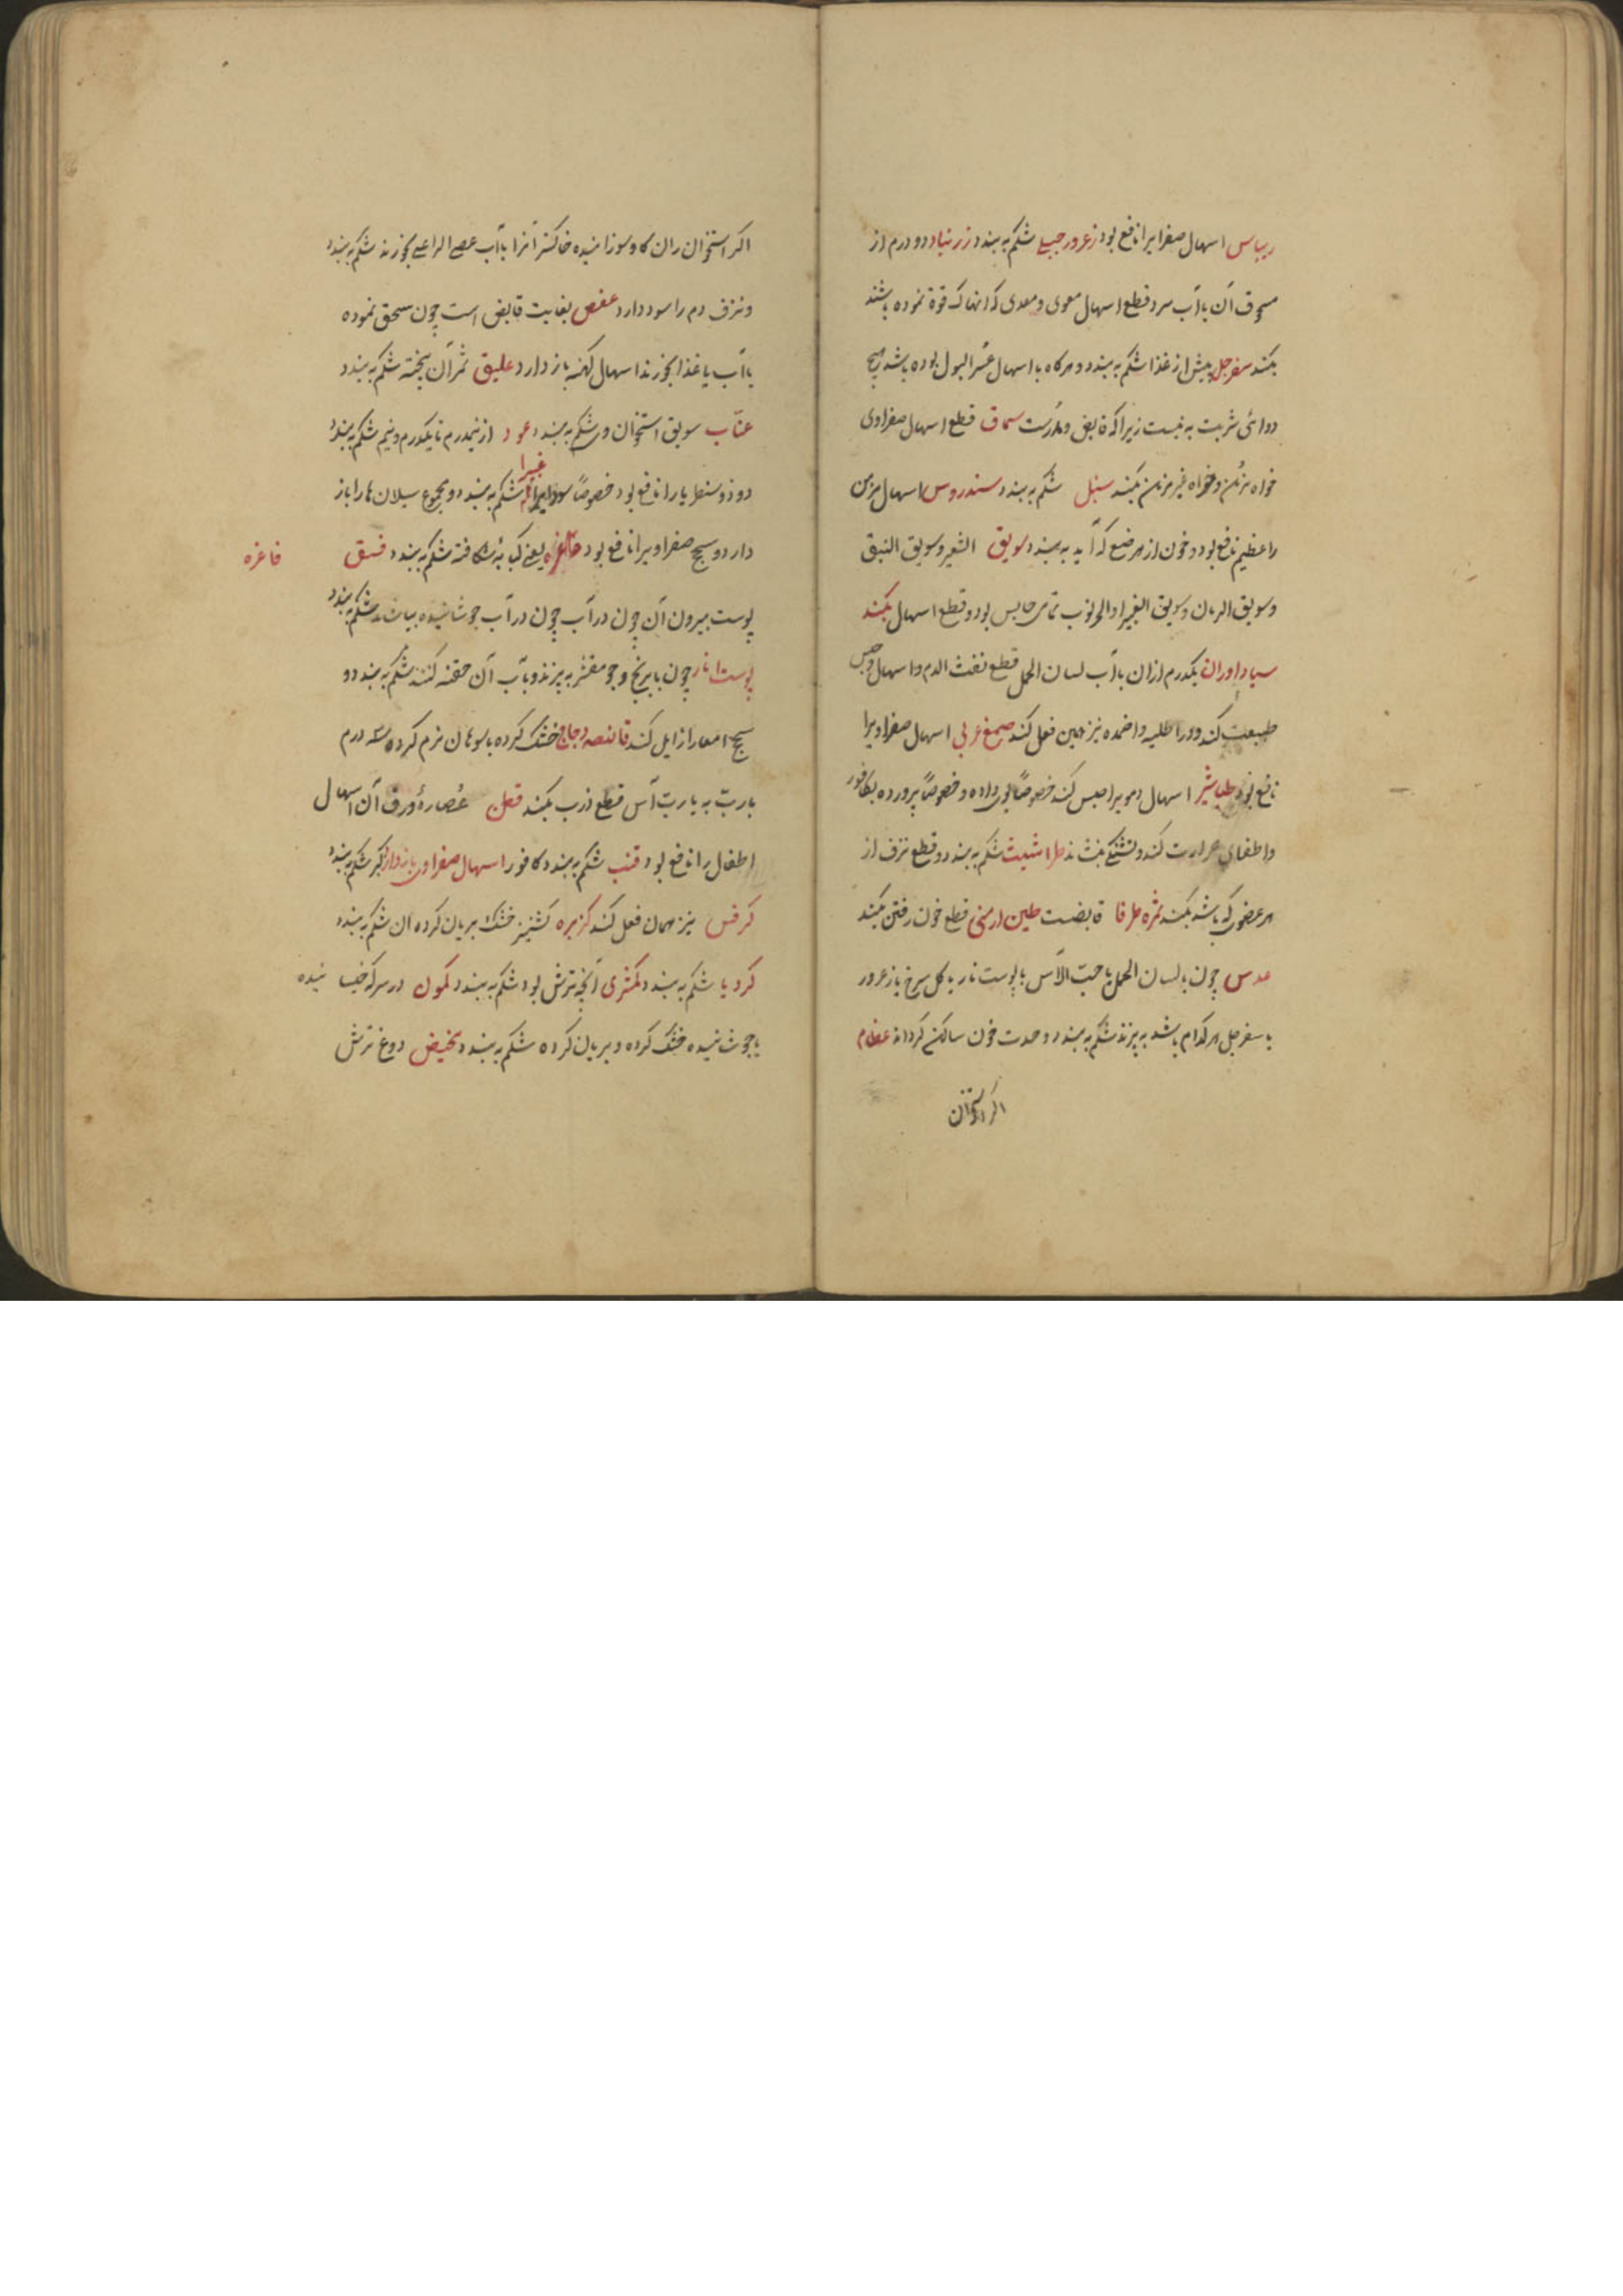 ریباس اسهال صفرا یرا نافع بود زعرور جبلے شکم به بندد زرنباد دو درم از
مسحوق آن با آب سرد قطع اسهال معوی و معدی که انهاک قوة نموده باشند
بکند سفرجل پیش از غذا شکم به بندد و هرکاه با اسهال عسر البول بوده باشد هیچ
دوائی شربت به نیست زیرا که قابض و مدرست سماق قطع اسهال صفراوی
خواه مزمن و خواه غیر مزمن بکند سنبل شکم به بندد سندروس اسهال مزمن
را عظیم نافع بود و خون از هر موضع که آید به بندد سویق الشعیر و سویق النبق
و سویق الرمان و سویق الغبیرا و الخرنوب تمامی حابس بود و قطع اسهال بکند
سیاداوران یکدرم ازان با آب لسان الحمل قطع نفث الدم و اسهال و حبس
طبیعت کند و در اطلیه و اضمده نیز همین فعل کند صمغ عربی اسهال صفراویرا
نافع بود طباشیر اسهال دمویرا حبس کند خصوصًا بوداده و خصوصًا پرورده بکافور
و اطفای حرارت کند و تشنگی بنشاند طراشیث شکم به بندد و قطع نزف از
هر عضوی که باشد بکند ثمره طرفا قابضست طین ارمنی قطع خون رفتن بکند
عدس چون با لسان الحمل یا حب الآس یا پوست نار یا کل سرخ یا زعرور
یا سفرجل هر کدام باشد به پزند شکم به بندد و حدت خون ساکن کرداند عظام
اکر استخوان
اکر استخوان ران کاو سوزانیده خاکستر آنرا با آب عصے الراعے بخورند شکم به بندد
و نزف دم را سود دارد عفص بغایت قابض است چون سحق نموده
با آب یا غذا بخورند اسهال کهنه باز دارد علیق ثمر آن پخته شکم به بندد
عنّاب سویق استخوان وی شکم به بندد عود از نیمدرم تا یکدرم و نیم شکم به بندد
غبیرا
دو ذوسنطاریا را نافع بود خصوصًا سوداویرا شکم به بندد و مجموع سیلان ها را باز
دارد و سحج صفراویرا نافع بود فاغره یعنے کبابهٔ شکافته شکم به بندد فستق
فاغره
پوست بیرون آن چون در آب چون در آب جوشانیده بیاشامند شکم به بندد
پوست انار چون با برنج و جو مقشر به پزند و بآب آن حقنه کنند شکم به بندد و
سحج امعا را زایل کند قانصه دجاج خشک کرده با سوهان نرم کرده سه درم
با ربّ به یا ربّ آس قطع ذرب بکند عُصارهٔ ورق آن اسهال
اطفال را نافع بود قنب شکم به بندد کافور اسهال صفراوی باز دارد کبر شکم به بندد
کرفس نیز همان فعل کند کزبره کشنیز خشک بریان کرده ان شکم به بندد
کرویا شکم به بندد کمثری آنچه ترش بود شکم به بندد کمون در سرکه خیسانیده
یا جوشانیده خشک کرده و بریان کرده شکم به بندد مخیض دوغ ترش